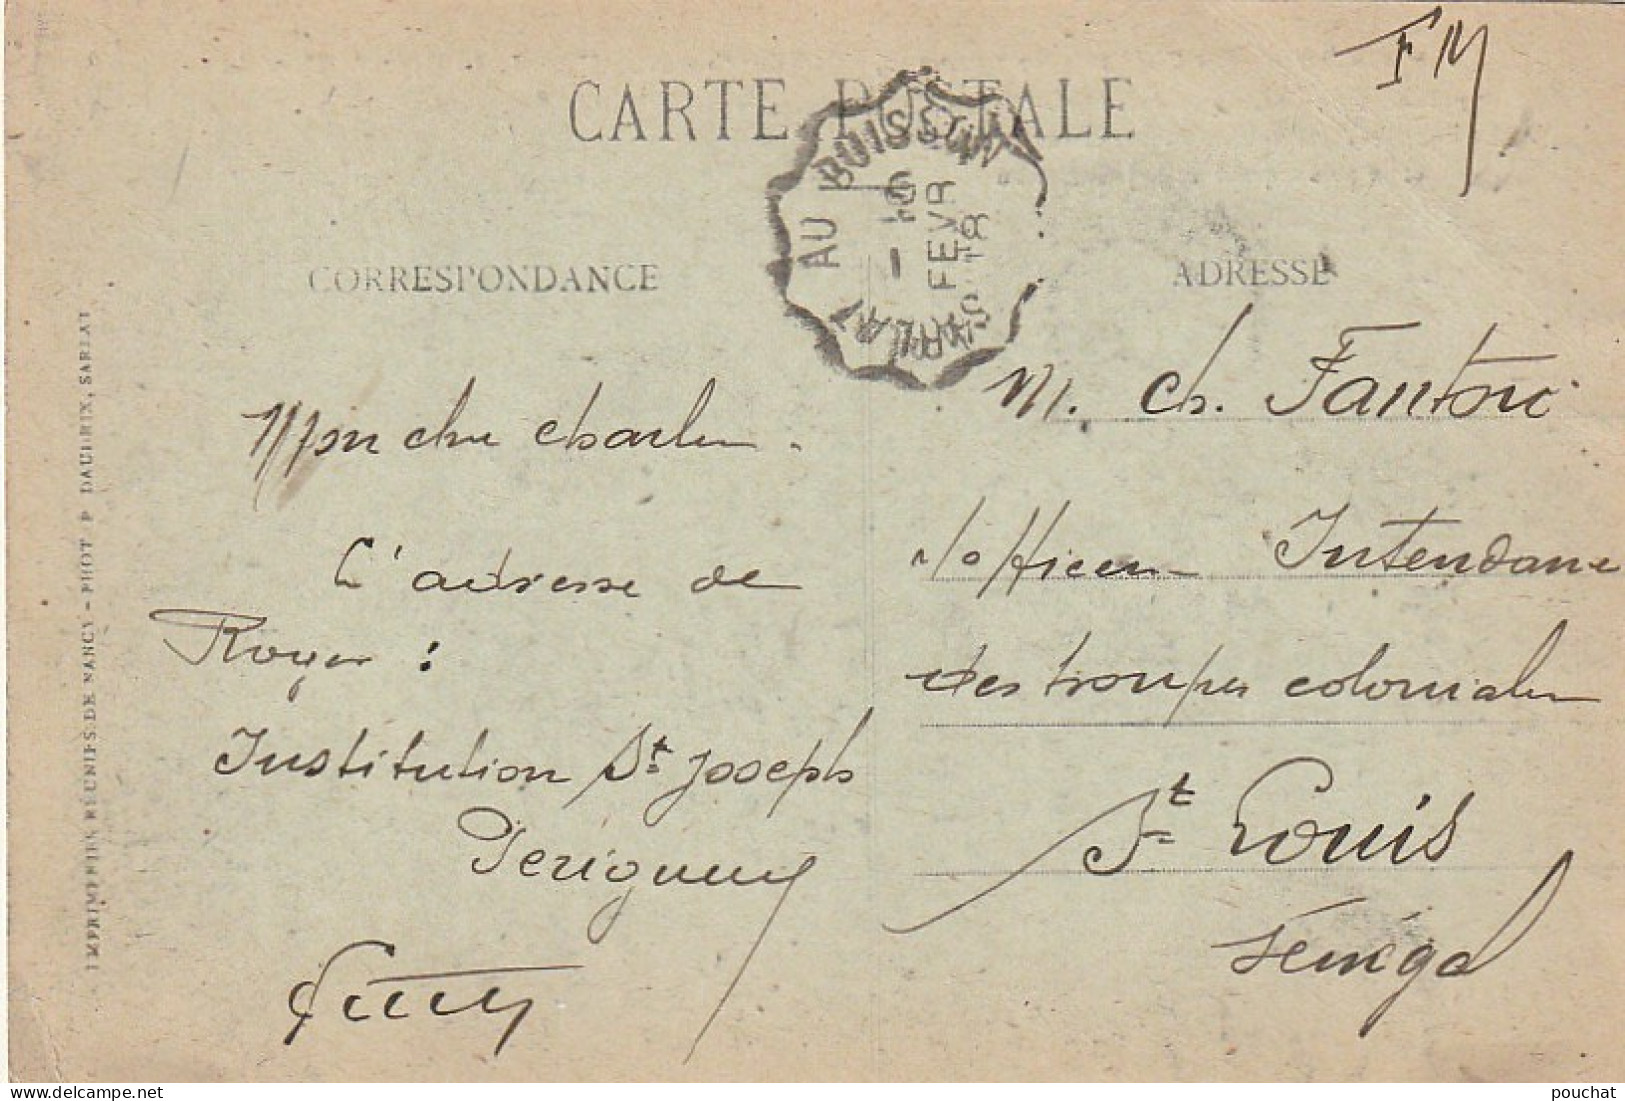 FM
CARTE POSTALE
SARLAT AU BUISSON
10
FEVR
18
CORRESPONDANCE
ADRESSE
Mon cher Charles.
L'adresse de
Roger :
Institution St Joseph
Perigueux
M. Ch. Fantoni
s/officier Intendance
des troupes coloniales
St Louis
Sénégal
IMPRIMERIES RÉUNIES DE NANCY - PHOT P DAUDRIX, SARLAT
www.delcampe.net
pouchat